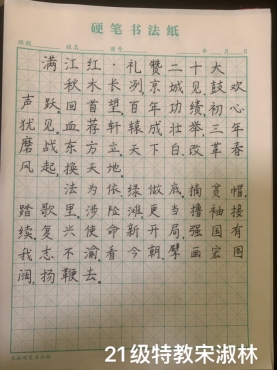 硬笔书法纸
班级 姓名 座号 年 月 日
满江红·礼赞二十大
秋水长冽京城见鼓欢
声跃。回首望百功绩。初心
犹见血荐轩辕成壮举三年
磨战东方天下白。改革春
风起换天地。
法为依,绿做底。摘贫帽,
踏歌里。涉险滩更当撸袖接
续。复兴使命新开局,强国有
我志不渝。看今朝擘画宏图
阔,扬鞭去。
21级特教宋淑林